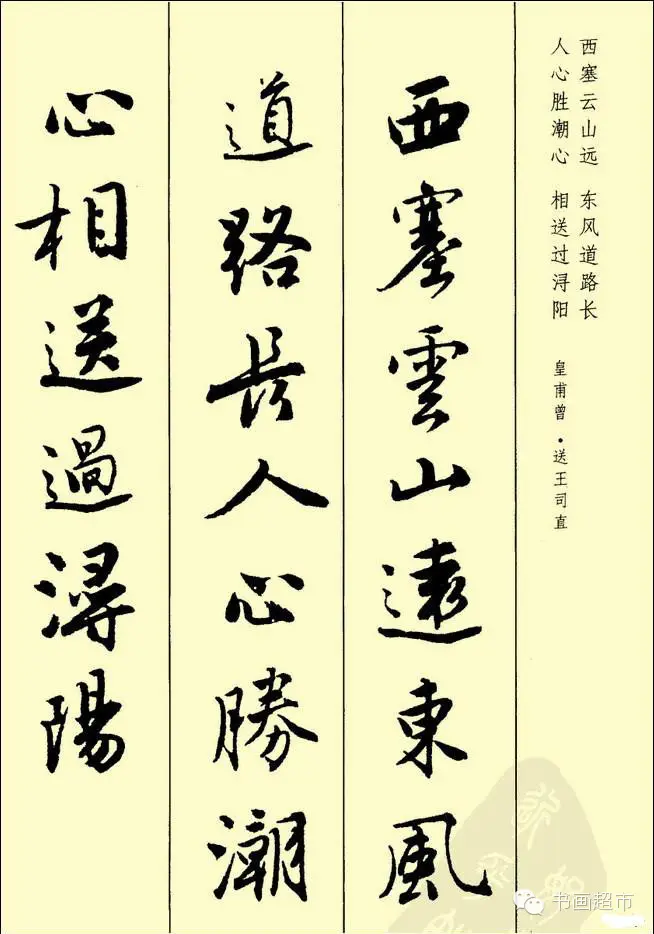 西塞云山远 东风道路长
人心胜潮心 相送过浔阳
皇甫曾·送王司直
西塞雲山遠東風
道路長人心勝潮
心相送過潯陽
书画超市